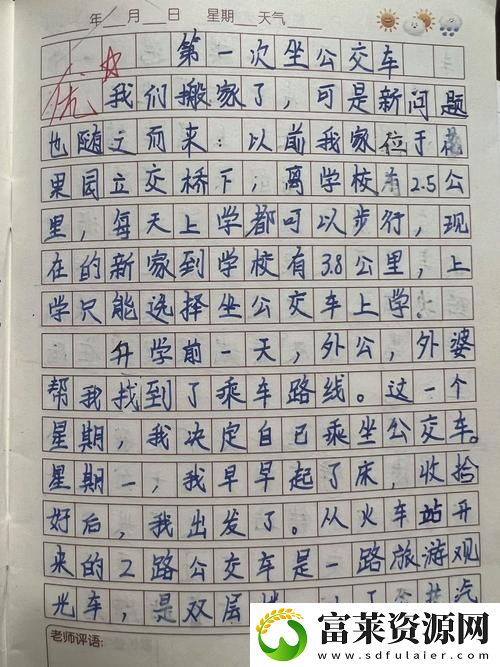 年 月 日 星期 天气
第一次坐公交车
优
我们搬家了，可是新问题
也随之而来：以前我家位于花
果园立交桥下，离学校有2.5公
里，每天上学都可以步行，现
在的新家到学校有3.8公里，上
学只能选择坐公交车上学。
升学前一天，外公，外婆
帮我找到了乘车路线。过一个
星期，我决定自己乘坐公交车。
星期一，我早早起了床，收拾
好后，我出发了。从火车站开
来的2路公交车是一路旅游观
光车，是双层
老师评语:
富莱资源网
www.sdfulaier.com